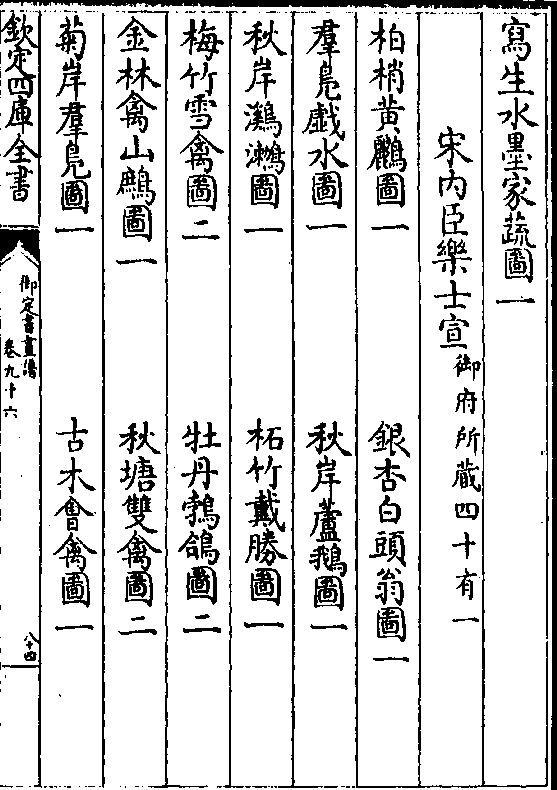 寫生水墨家蔬圖一
宋內臣樂士宣御府所藏四十有一
柏梢黃鸝圖一　銀杏白頭翁圖一
羣鳧戲水圖一　秋岸蘆鵝圖一
秋岸鸂鷘圖一　柘竹戴勝圖一
梅竹雪禽圖二　牡丹鵓鴿圖二
金林禽山鷓圖一　秋塘雙禽圖二
菊岸羣鳧圖一　古木會禽圖一
欽定四庫全書　御定書畫譜　卷九十六　八十四